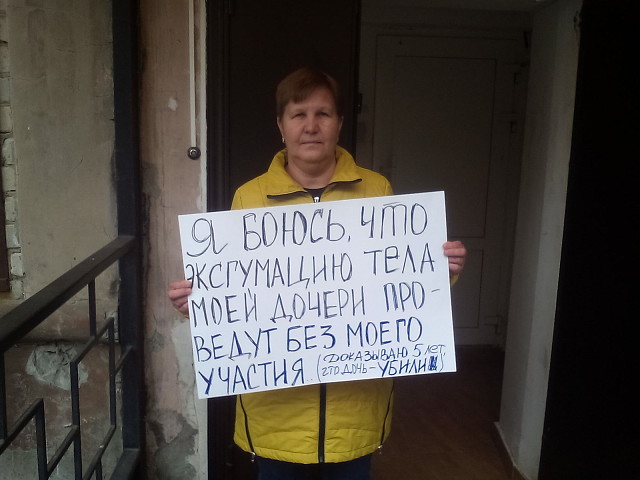 Я БОЮСЬ, ЧТО
ЭКСГУМАЦИЮ ТЕЛА
МОЕЙ ДОЧЕРИ ПРО-
ВЕДУТ БЕЗ МОЕГО
УЧАСТИЯ. (ДОКАЗЫВАЮ 5 ЛЕТ,
ЧТО ДОЧЬ - УБИЛИ!)